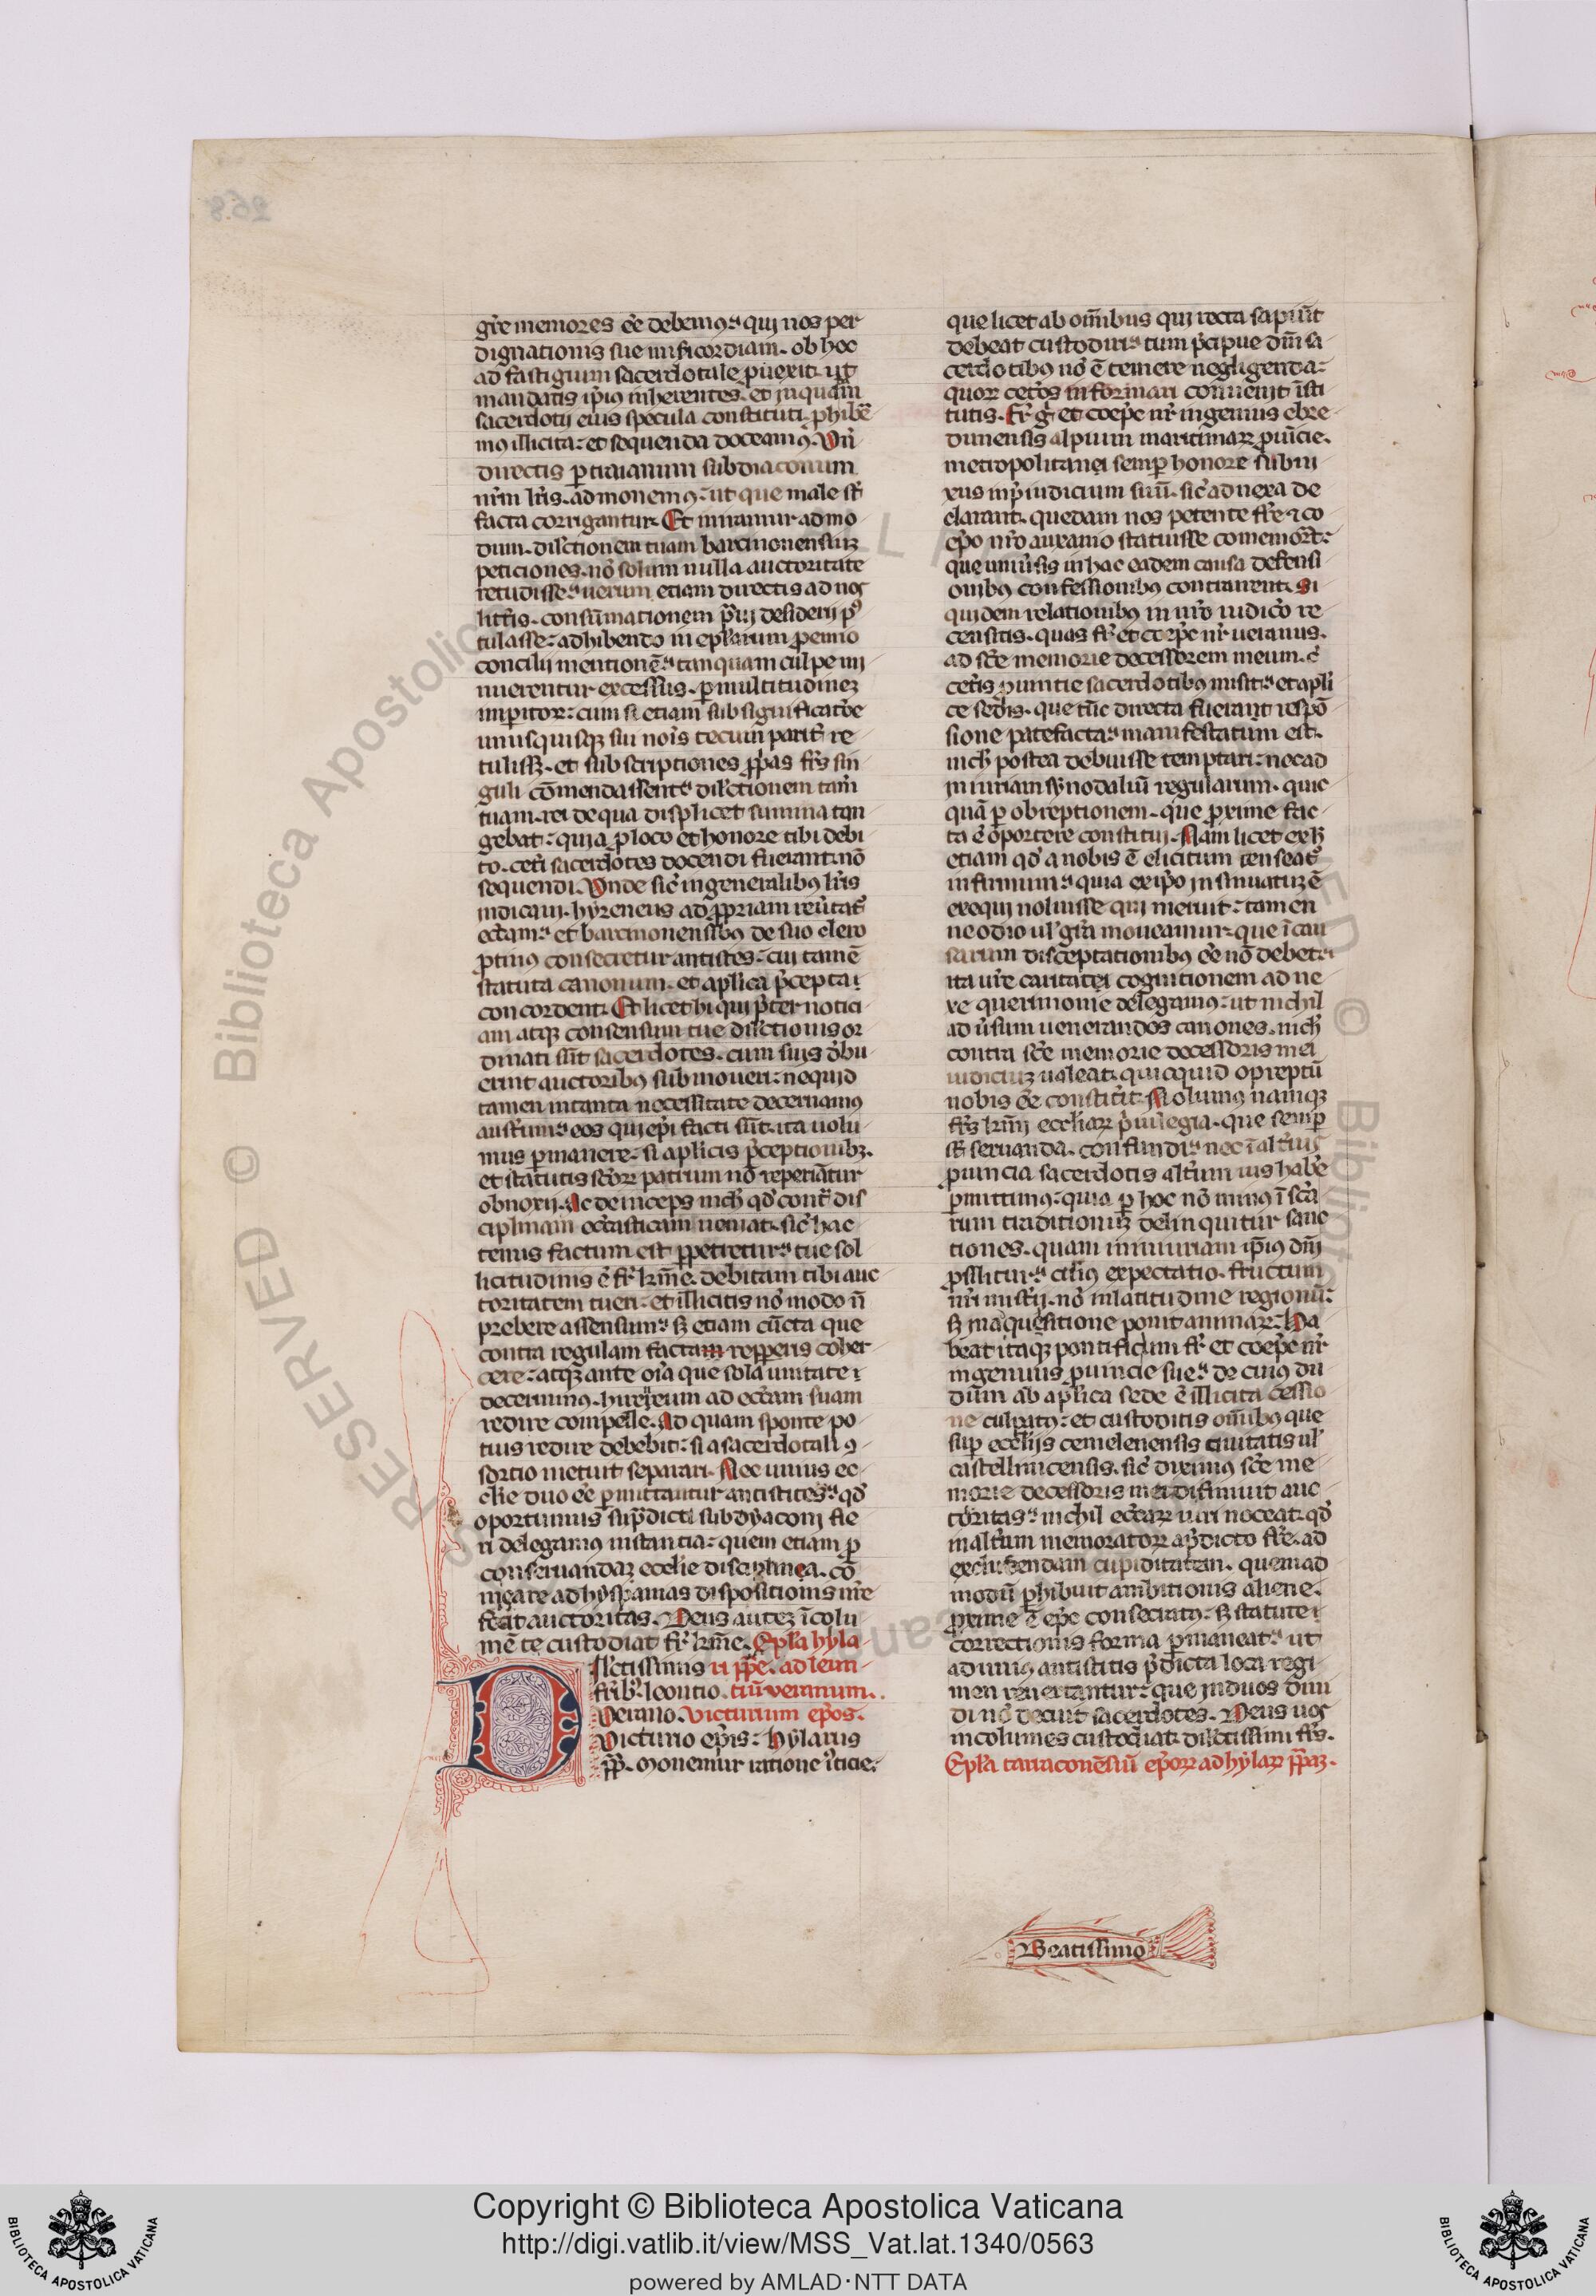 gr̄e memores eē debemꝰ qui nos per
dignationis sue mīsicordiam. ob hoc
ad fastigium sacerdotale ꝓuexit. ut
mandatis ip̄ius inherentes. et in quadam
sacerdotij eius specula constituti. ꝓhibea
mꝰ illicita: et sequenda doceamꝰ. Vn̄
directis ꝑ traianum subdiaconum
nr̄m lr̄is. admonemꝰ: ut que male st̄
facta corrigantur. Et miramur admo
dum. dil̄ctionem tuam barcinonensiuꝫ
peticiones. nō solum nulla auctoritate
retudisse uerum etiam directis ad nos
litt̄is. consūmationem praui desiderij pꝰ
tulasse: adhibendo in epl̄arum ꝓemio
concilij mentionē tanquam culpe mi
nuerentur excessus. ꝑ multitudineꝫ
imꝑitoꝝ: cum si etiam sub significatōe
unusquisqꝫ sui noīs tecum parit̄ re
tulissꝫ. et subscriptiones ꝓp̄as frēs sin
guli cōmendassent dil̄ctionem tam̄
tuam. rei de qua displicet summa tan
gebat: quia ꝓ loco et honore tibi debi
to. ceti sacerdotes docendi fuerant. nō
sequendi. Vnde sic̄ in generalibꝰ lr̄is
indicaui. hyreneus ad ꝓpriam reu̇tat̄
ecc̄am et barcinonensibꝰ de suo clero
ꝓtinꝰ consecretur antistes: cui tamē
statuta canonum. et aplica p̄cepta
concordent. Et licet hi qui p̄ter notici
am atqꝫ consensum tue dil̄ctionis or
dinati sūt sacerdotes. cum suis d̄bu
erint auctoribꝰ submoueri: nequid
tamen in tanta necessitate decernamꝰ
austerum eos qui ep̄i facti sūt. ita uolu
mus ꝑmanere: si aplicis p̄ceptionibꝫ.
et statutis scōꝝ patrum nō reperiātur
obnoxij. Ac deinceps nich̄ qd̄ cont̄ dis
ciplinam ecc̄asticam ueniat. sic̄ hac
tenus factum est ꝑpetretur tue sol
licitudinis ē fr̄ kr̄me. debitam tibi auc
toritatem tueri. et illicitis nō modo n̄
prebere assensum sꝫ etiam cūcta que
contra regulam facta repperis coher
cere: atqꝫ ante oīa que sola unitate
decernimꝰ. hireneum ad ecc̄am suam
redire compelle. Ad quam sponte po
tius redire debebit: si a sacerdotali ꝯ
sortio metuit separari. Nec unius ec
clie duo eē ꝑmittantur antistites qd̄
oportunius sup̄dicti subdyaconi fie
ri delegamus instantia: quem etiam ꝑ
conseruandaꝫ ecclie disciplinea. cō
meare ad hyspanias dispositionis nr̄e
fecit auctoritas. Deus auteꝫ īcolu
mē te custodiat fr̄ kr̄me. Epl̄a hyla
Dil̄ctissimis ri pp̄e. ad leon
fr̄ibꝰ leontio. tiū ueranum.
Verano. Victurium ep̄os.
Victurio ep̄is: hylarus
pp̄. Monemur ratione iusticie:
que licet ab oīnibus qui recta sapiūt
debeat custodiri tum p̄cipue dn̄i sa
cerdotibꝰ nō ē temere negligenda:
quoꝝ cet̄os informari conuenit īsti
tutis. Fr̄ g̊ et coep̄c nr̄ ingenuus ebre
dunensis alpium maritimaꝝ ꝓuīcie.
metropolitanei semꝑ honore subni
xus inp̄iudicium suū. sic̄ adnexa de
clarant. quedam nos petente fr̄e ⁊ co
ep̄o nr̄o auxanio statuisse comemorat:
que uniu̇sis in hac eadem causa defensi
onibꝰ confessionibꝰ contrairent. Si
quidem relationibꝰ in nr̄o iudic̄o re
censitis. quas fr̄ et coep̄c nr̄ ueranus.
ad sc̄e memorie decessorem meum. c̄
cet̄is ꝓuincie sacerdotibꝰ misit et apli
ce sedis. que tūc directa fuerant respō
sione patefacta manifestatum est.
nich̄ postea debuisse temptari: nec ad
iniuriam synodaliū regularum. quic
quā ꝑ obreptionem. que ꝓxime fac
ta ē oportere constitui. Nam licet ex hꝫ
etiam qd̄ a nobis ē elicitum censeat̄
infirmum quia ex ip̄o insinuatuꝫ ē
exequi noluisse qui meruit: tamen
ne odio ul̄ gr̄a moueamur: que ī cau
sarum disceptationibꝰ eē nō debet
ita ur̄e caritatei cognitionem adne
xe querimonie delegamus: ut nichil
adu̇sum uenerandos canones. nich̄
contra sc̄e memorie decessoris mei
iudiciuꝫ ualeat. quicquid opreptū
nobis eē constit̄it. Nolumus namqꝫ
fr̄s kr̄mi eccliaꝝ p̄uilegia. que semꝑ
st̄ seruanda. confundi nec ī alt̄ius
ꝓuincia sacerdotis alt̄um ius habe
ꝑmittimꝰ: quia ꝑ hoc nō minꝰ ī scā
rum traditionuꝫ delinquitur sanc
tiones. quam in iniuriam ip̄ius dn̄i
ꝓsilitur cuius expectatio. fructum
nr̄i mist̄ij. nō in latitudine regionū:
sꝫ in aquesitione ponit animaꝝ: Ha
beat itaqꝫ pontificium fr̄ et coep̄c nr̄
ingenuus ꝓuincie sue de cuius du
dum ab aplica sede ē illicita cessio
ne culpatꝰ: et custoditis oīnibꝰ que
suꝑ eccliis cemelenensis ciuitatis ul̄
castelli nicensis. sic̄ diximꝰ sc̄e me
morie decessoris mei difiniuit auc
toritas nichil ecc̄aꝝ iuri noceat. qd̄
in alt̄um memoratoꝝ a p̄dicto fr̄e. ad
excludendam cupiditatem. quemad
modū ꝓhibuit ambitionis aliene.
ꝓxime ē ep̄c consecratꝰ: sꝫ statute
correctionis forma ꝑmaneat ut
ad unius antistitis p̄dicta loca regi
men reuertantur: que in duos diui
di nō decuit sacerdotes. Deus uos
incolumes custodiat dil̄ctissimi fr̄s.
Epl̄a tarraconēsiū ep̄oꝝ ad hylaꝝ pp̄aꝫ.
Beatissimo
268
Copyright © Biblioteca Apostolica Vaticana
http://digi.vatlib.it/view/MSS_Vat.lat.1340/0563
powered by AMLAD·NTT DATA
BIBLIOTECA APOSTOLICA VATICANA
BIBLIOTECA APOSTOLICA VATICANA